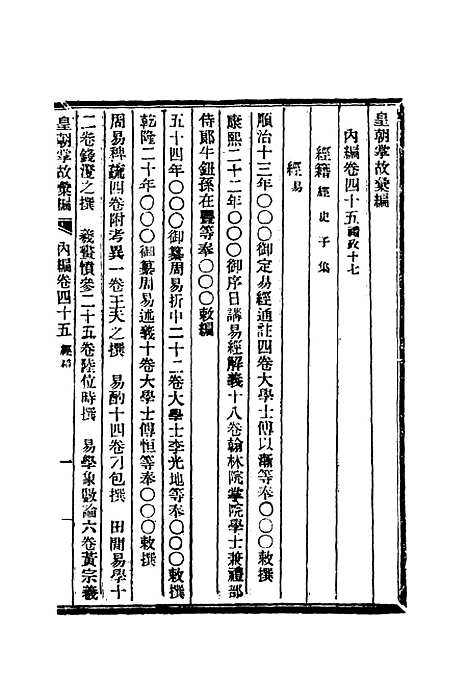 皇朝掌故彙編
內編卷四十五禮政十七
經籍 經史子集
經易
順治十三年〇〇〇御定易經通註四卷大學士傅以漸等奉〇〇〇敕撰
康熙二十二年〇〇〇御序日講易經解義十八卷翰林院掌院學士兼禮部
侍郞牛鈕孫在豐等奉〇〇〇敕編
五十四年〇〇〇御纂周易折中二十二卷大學士李光地等奉〇〇〇敕撰
乾隆二十年〇〇〇御纂周易述義十卷大學士傅恒等奉〇〇〇敕撰
周易稗疏四卷附考異一卷王夫之撰 易酌十四卷刁包撰 田間易學十
二卷錢澄之撰 羲畫憤參二十五卷陸位時撰 易學象數論六卷黃宗羲
皇朝掌故彙編 內編卷四十五 經易 一